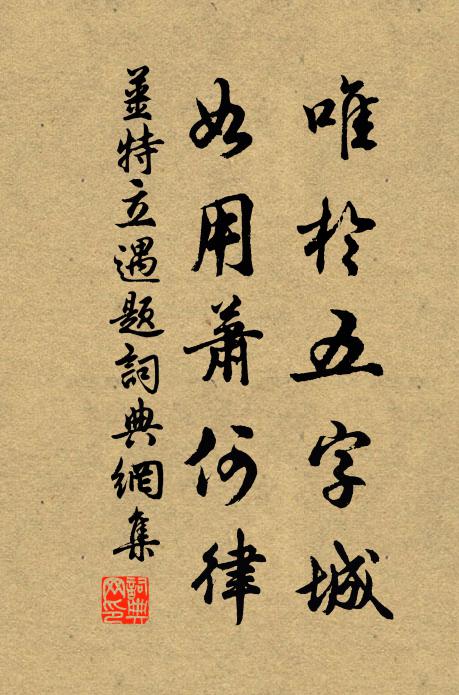 唯於五字城
如用蕭何律
姜特立遇題詞典網集
詞典網印